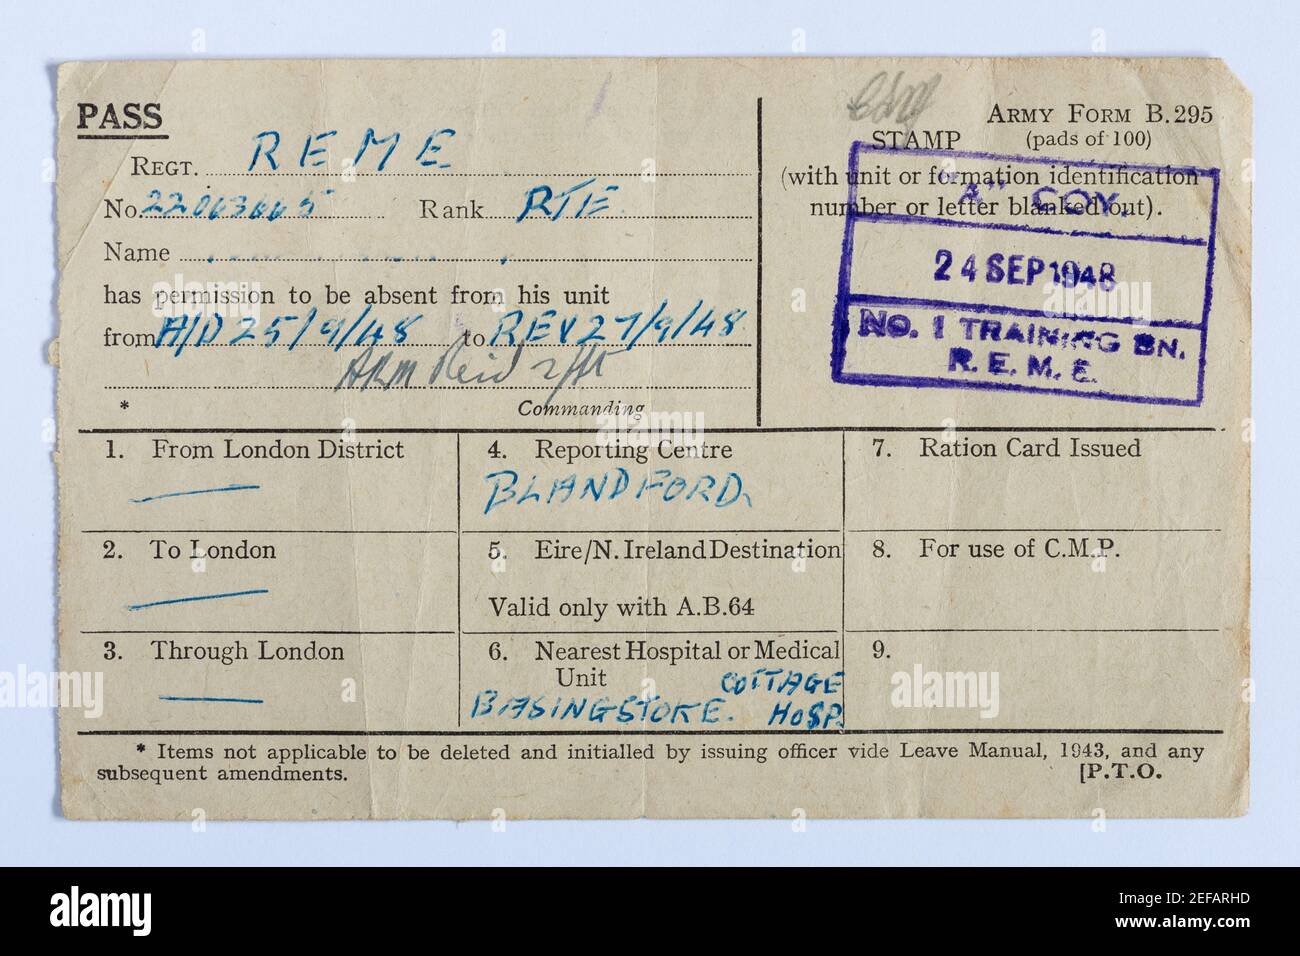 PASS
ARMY FORM B.295
STAMP (pads of 100)
REGT. REME
(with unit or formation identification
number or letter blanked out).
"A" COY.
No. 22063665 Rank RTE.
Name
has permission to be absent from his unit
24 SEP 1948
from A/D 25/9/48 to REV 27/9/48
NO. 1 TRAINING BN.
R. E. M. E.
* Commanding
1. From London District
4. Reporting Centre
BLANDFORD.
7. Ration Card Issued
2. To London
5. Eire/N. Ireland Destination
Valid only with A.B.64
8. For use of C.M.P.
3. Through London
6. Nearest Hospital or Medical
Unit COTTAGE
BASINGSTOKE. HOSP.
9.
* Items not applicable to be deleted and initialled by issuing officer vide Leave Manual, 1943, and any
subsequent amendments. [P.T.O.
alamy
Image ID: 2EFARHD
www.alamy.com